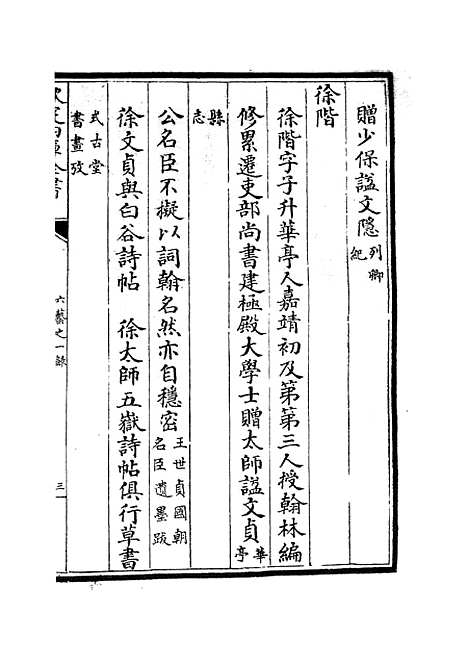 贈少保諡文隱列卿紀
徐階
徐階字子升華亭人嘉靖初及第第三人授翰林編
修累遷吏部尚書建極殿大學士贈太師諡文貞華亭
縣志
公名臣不擬以詞翰名然亦自穩密王世貞國朝名臣遺墨跋
徐文貞與白谷詩帖　徐太師五嶽詩帖俱行草書
式古堂書畫攷
六藝之一錄
三